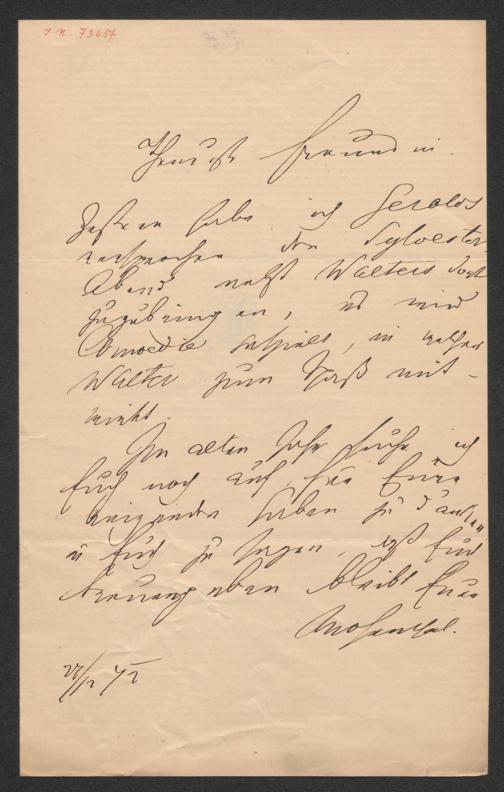 I. N. 73657
Theuerste Freundin.
Gestern habe ich Gerolds
versprochen den Sylvester
Abend nebst Walters dort
zuzubringen, es wird
Comoedie gespielt, in welcher
Walter zum Spaß mit-
wirkt.
Im alten Jahr suche ich
Euch noch auf für Eure
reizenden Gaben zu danken
u Euch zu sagen, daß Euch
treuergeben bleibt Euer
Mosenthal.